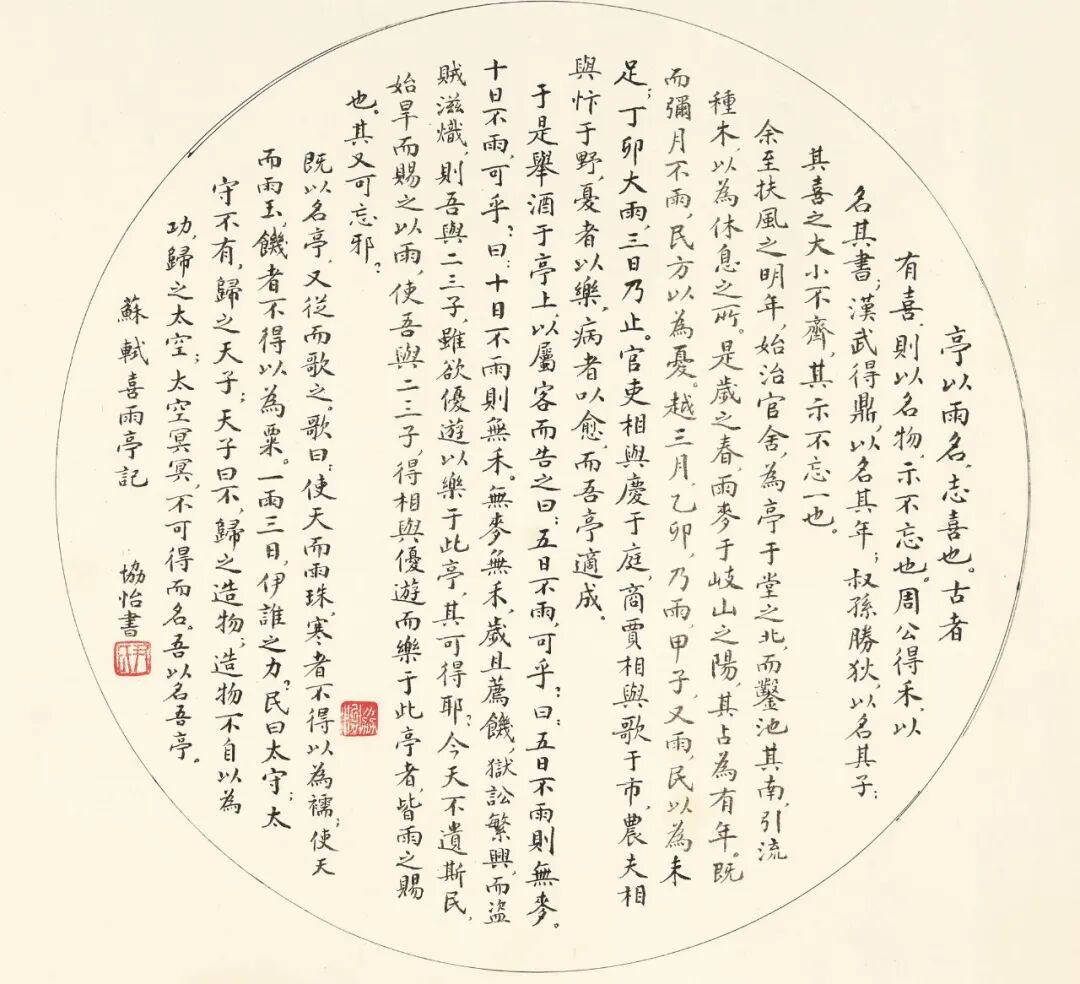 亭以雨名,志喜也。古者
有喜,則以名物,示不忘也。周公得禾,以
名其書;漢武得鼎,以名其年;叔孫勝狄,以名其子;
其喜之大小不齊,其示不忘一也。
余至扶風之明年,始治官舍,為亭于堂之北,而鑿池其南,引流
種木,以為休息之所。是歲之春,雨麥于岐山之陽,其占為有年。既
而彌月不雨,民方以為憂。越三月,乙卯,乃雨,甲子,又雨,民以為未
足;丁卯大雨,三日乃止。官吏相與慶于庭,商賈相與歌于市,農夫相
與忭于野,憂者以樂,病者以愈,而吾亭適成。
于是舉酒于亭上,以屬客而告之曰:五日不雨,可乎?曰:五日不雨則無麥。
十日不雨,可乎?曰:十日不雨則無禾。無麥無禾,歲且薦饑,獄訟繁興,而盜
賊滋熾,則吾與二三子,雖欲優遊以樂于此亭,其可得耶?今天不遺斯民,
始旱而賜之以雨,使吾與二三子,得相與優遊而樂于此亭者,皆雨之賜
也。其又可忘邪?
既以名亭,又從而歌之。歌曰:使天而雨珠,寒者不得以為襦;使天
而雨玉,饑者不得以為粟。一雨三日,伊誰之力?民曰太守;太
守不有,歸之天子;天子曰不,歸之造物;造物不自以為
功,歸之太空;太空冥冥,不可得而名。吾以名吾亭。
蘇軾喜雨亭記
協怡書